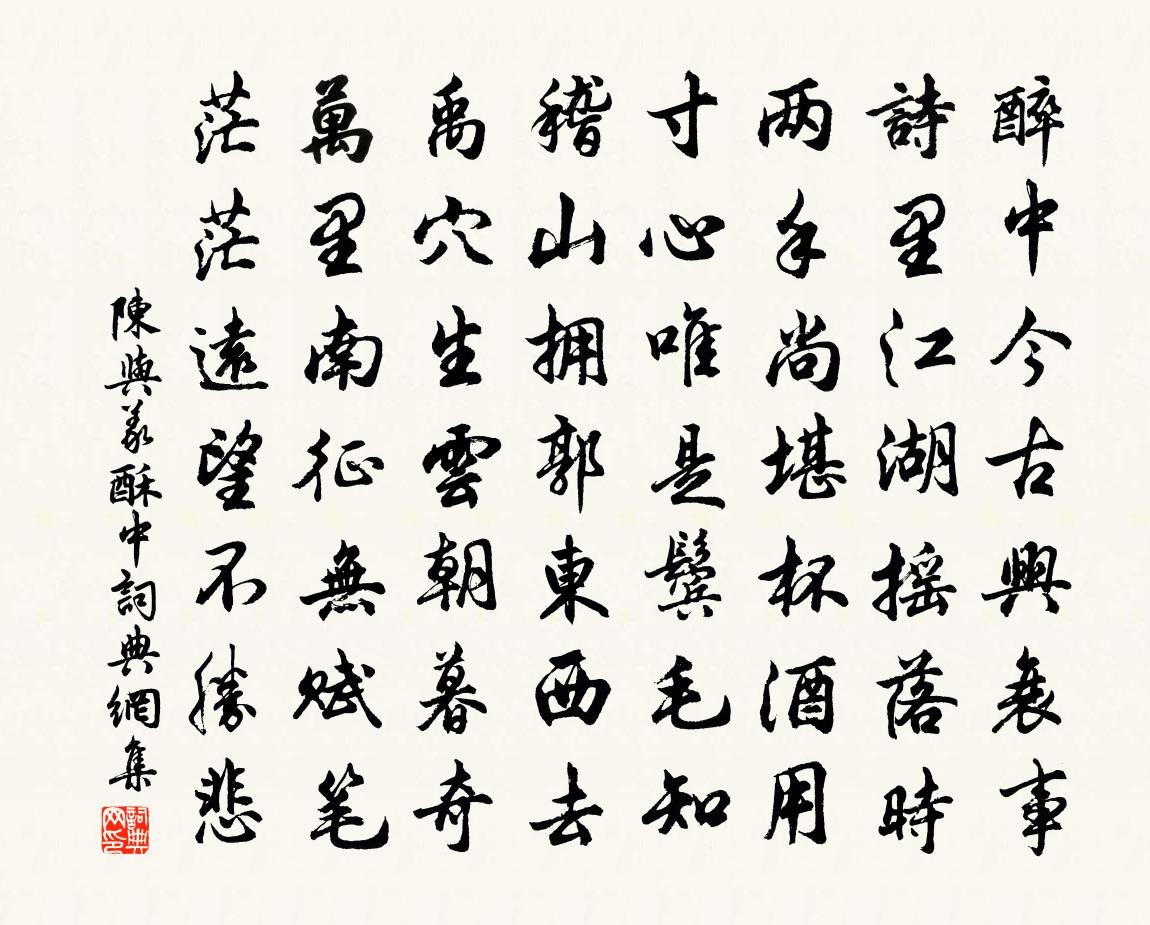 醉中今古興衰事
詩里江湖摇落時
两手尚堪杯酒用
寸心唯是鬓毛知
稽山拥郭東西去
禹穴生雲朝暮奇
萬里南征無赋笔
茫茫遠望不勝悲
陳與義酥中詞典網集
詞典网印